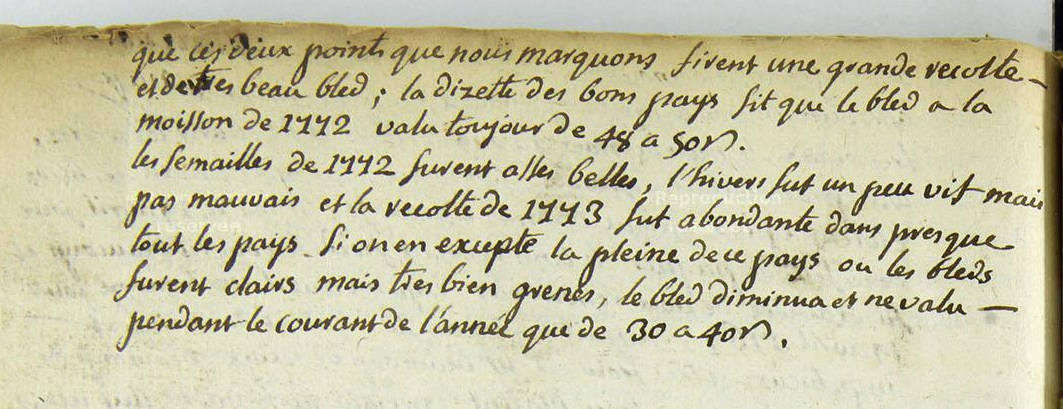 que ces deux points que nous marquons firent une grande recolte
et de tres beau bled ; la dizette des bons pays fit que le bled a la
moisson de 1772 valu toujour de 48 a 50 n.
les semailles de 1772 furent asses belles, l'hivers fut un peu vif mais
pas mauvais et la recolte de 1773 fut abondante dans presque
tout les pays si on en excepte la pleine de ce pays ou les bleds
furent clairs mais tres bien grenés, le bled diminua et ne valu
pendant le courant de l'année que de 30 a 40 n.